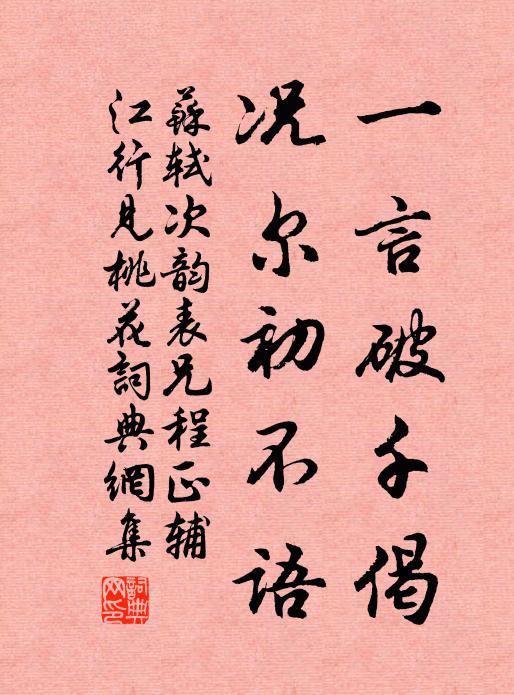 一言破千偈
况尔初不语
蘇軾次韵表兄程正輔
江行見桃花詞典網集
詞典
网印